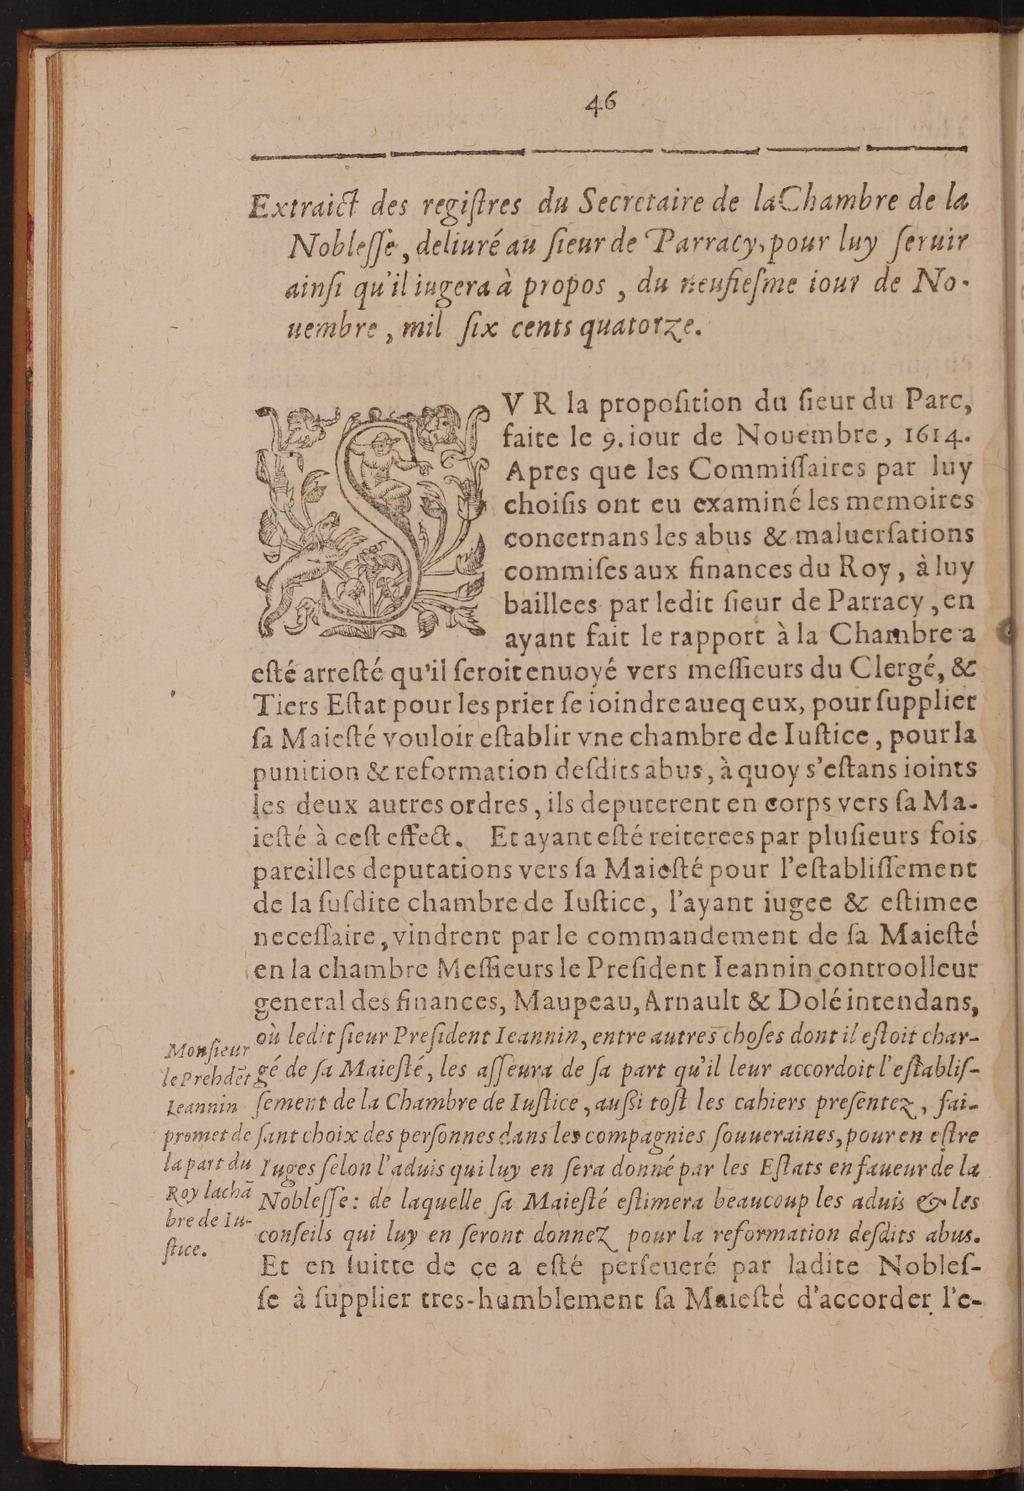 46
Extraict des regiſtres du Secretaire de la Chambre de la
Nobleſſe, deliuré au ſieur de Parracy, pour luy ſeruir
ainſi qu'il iugera à propos, du neufieſme iour de No-
uembre, mil ſix cents quatorze.
SVR la propoſition du ſieur du Parc,
faite le 9. iour de Nouembre, 1614.
Apres que les Commiſſaires par luy
choiſis ont eu examiné les memoires
concernans les abus & maluerſations
commiſes aux finances du Roy, à luy
baillees par ledit ſieur de Parracy, en
ayant fait le rapport à la Chambre a
eſté arreſté qu'il ſeroit enuoyé vers meſſieurs du Clergé, &
Tiers Eſtat pour les prier ſe ioindre aueq eux, pour ſupplier
ſa Maieſté vouloir eſtablir vne chambre de Iuſtice, pour la
punition & reformation deſdits abus, à quoy s'eſtans ioints
les deux autres ordres, ils deputerent en corps vers ſa Ma-
ieſté à ceſt effect. Et ayant eſté reiterees par pluſieurs fois
pareilles deputations vers ſa Maieſté pour l'eſtabliſſement
de la ſuſdite chambre de Iuſtice, l'ayant iugee & eſtimee
neceſſaire, vindrent par le commandement de ſa Maieſté
en la chambre Meſſieurs le Preſident Ieannin controolleur
general des finances, Maupeau, Arnault & Dolé intendans,
où ledit ſieur Preſident Ieannin, entre autres choſes dont il eſtoit char-
gé de ſa Maieſté, les aſſeura de ſa part qu'il leur accordoit l'eſtabliſ-
ſement de la Chambre de Iuſtice, auſſi toſt les cahiers preſentez, fai-
ſant choix des perſonnes dans les compagnies ſouueraines, pour en eſtre
Iuges ſelon l'aduis qui luy en ſera donné par les Eſtats en faueur de la
Nobleſſe: de laquelle ſa Maieſté eſtimera beaucoup les aduis & les
conſeils qui luy en ſeront donnez pour la reformation deſdits abus.
Et en ſuitte de ce a eſté perſeueré par ladite Nobleſ-
ſe à ſupplier tres-humblement ſa Maieſté d'accorder l'e-
Monſieur
le Preſidēt
Ieannin
promet de
la part du
Roy la chā
bre de Iu-
ſtice.